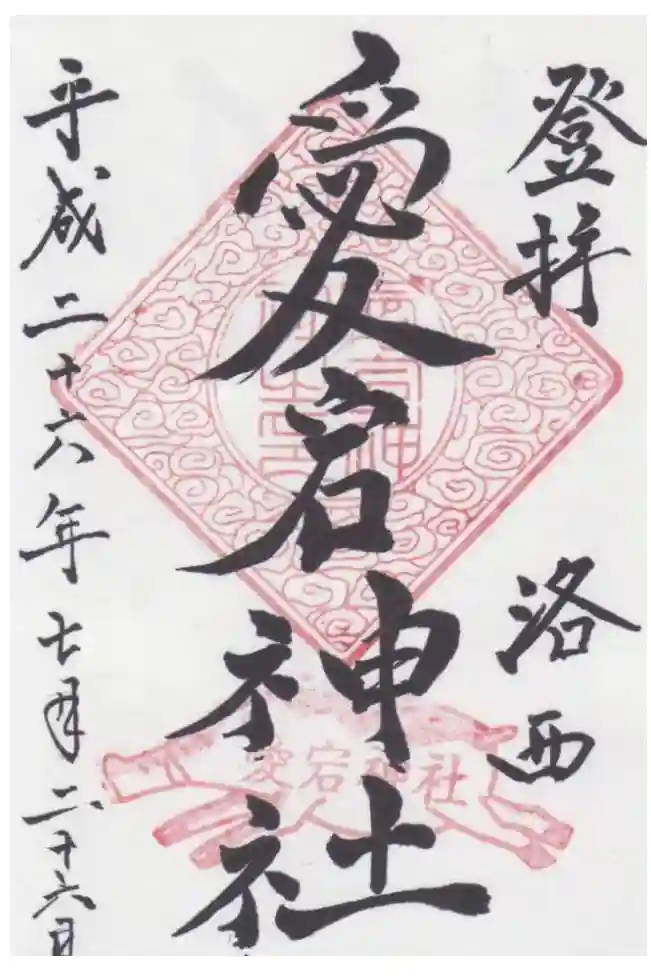 登拝 洛西
愛宕神社
愛宕神社
平成二十六年七月二十六日